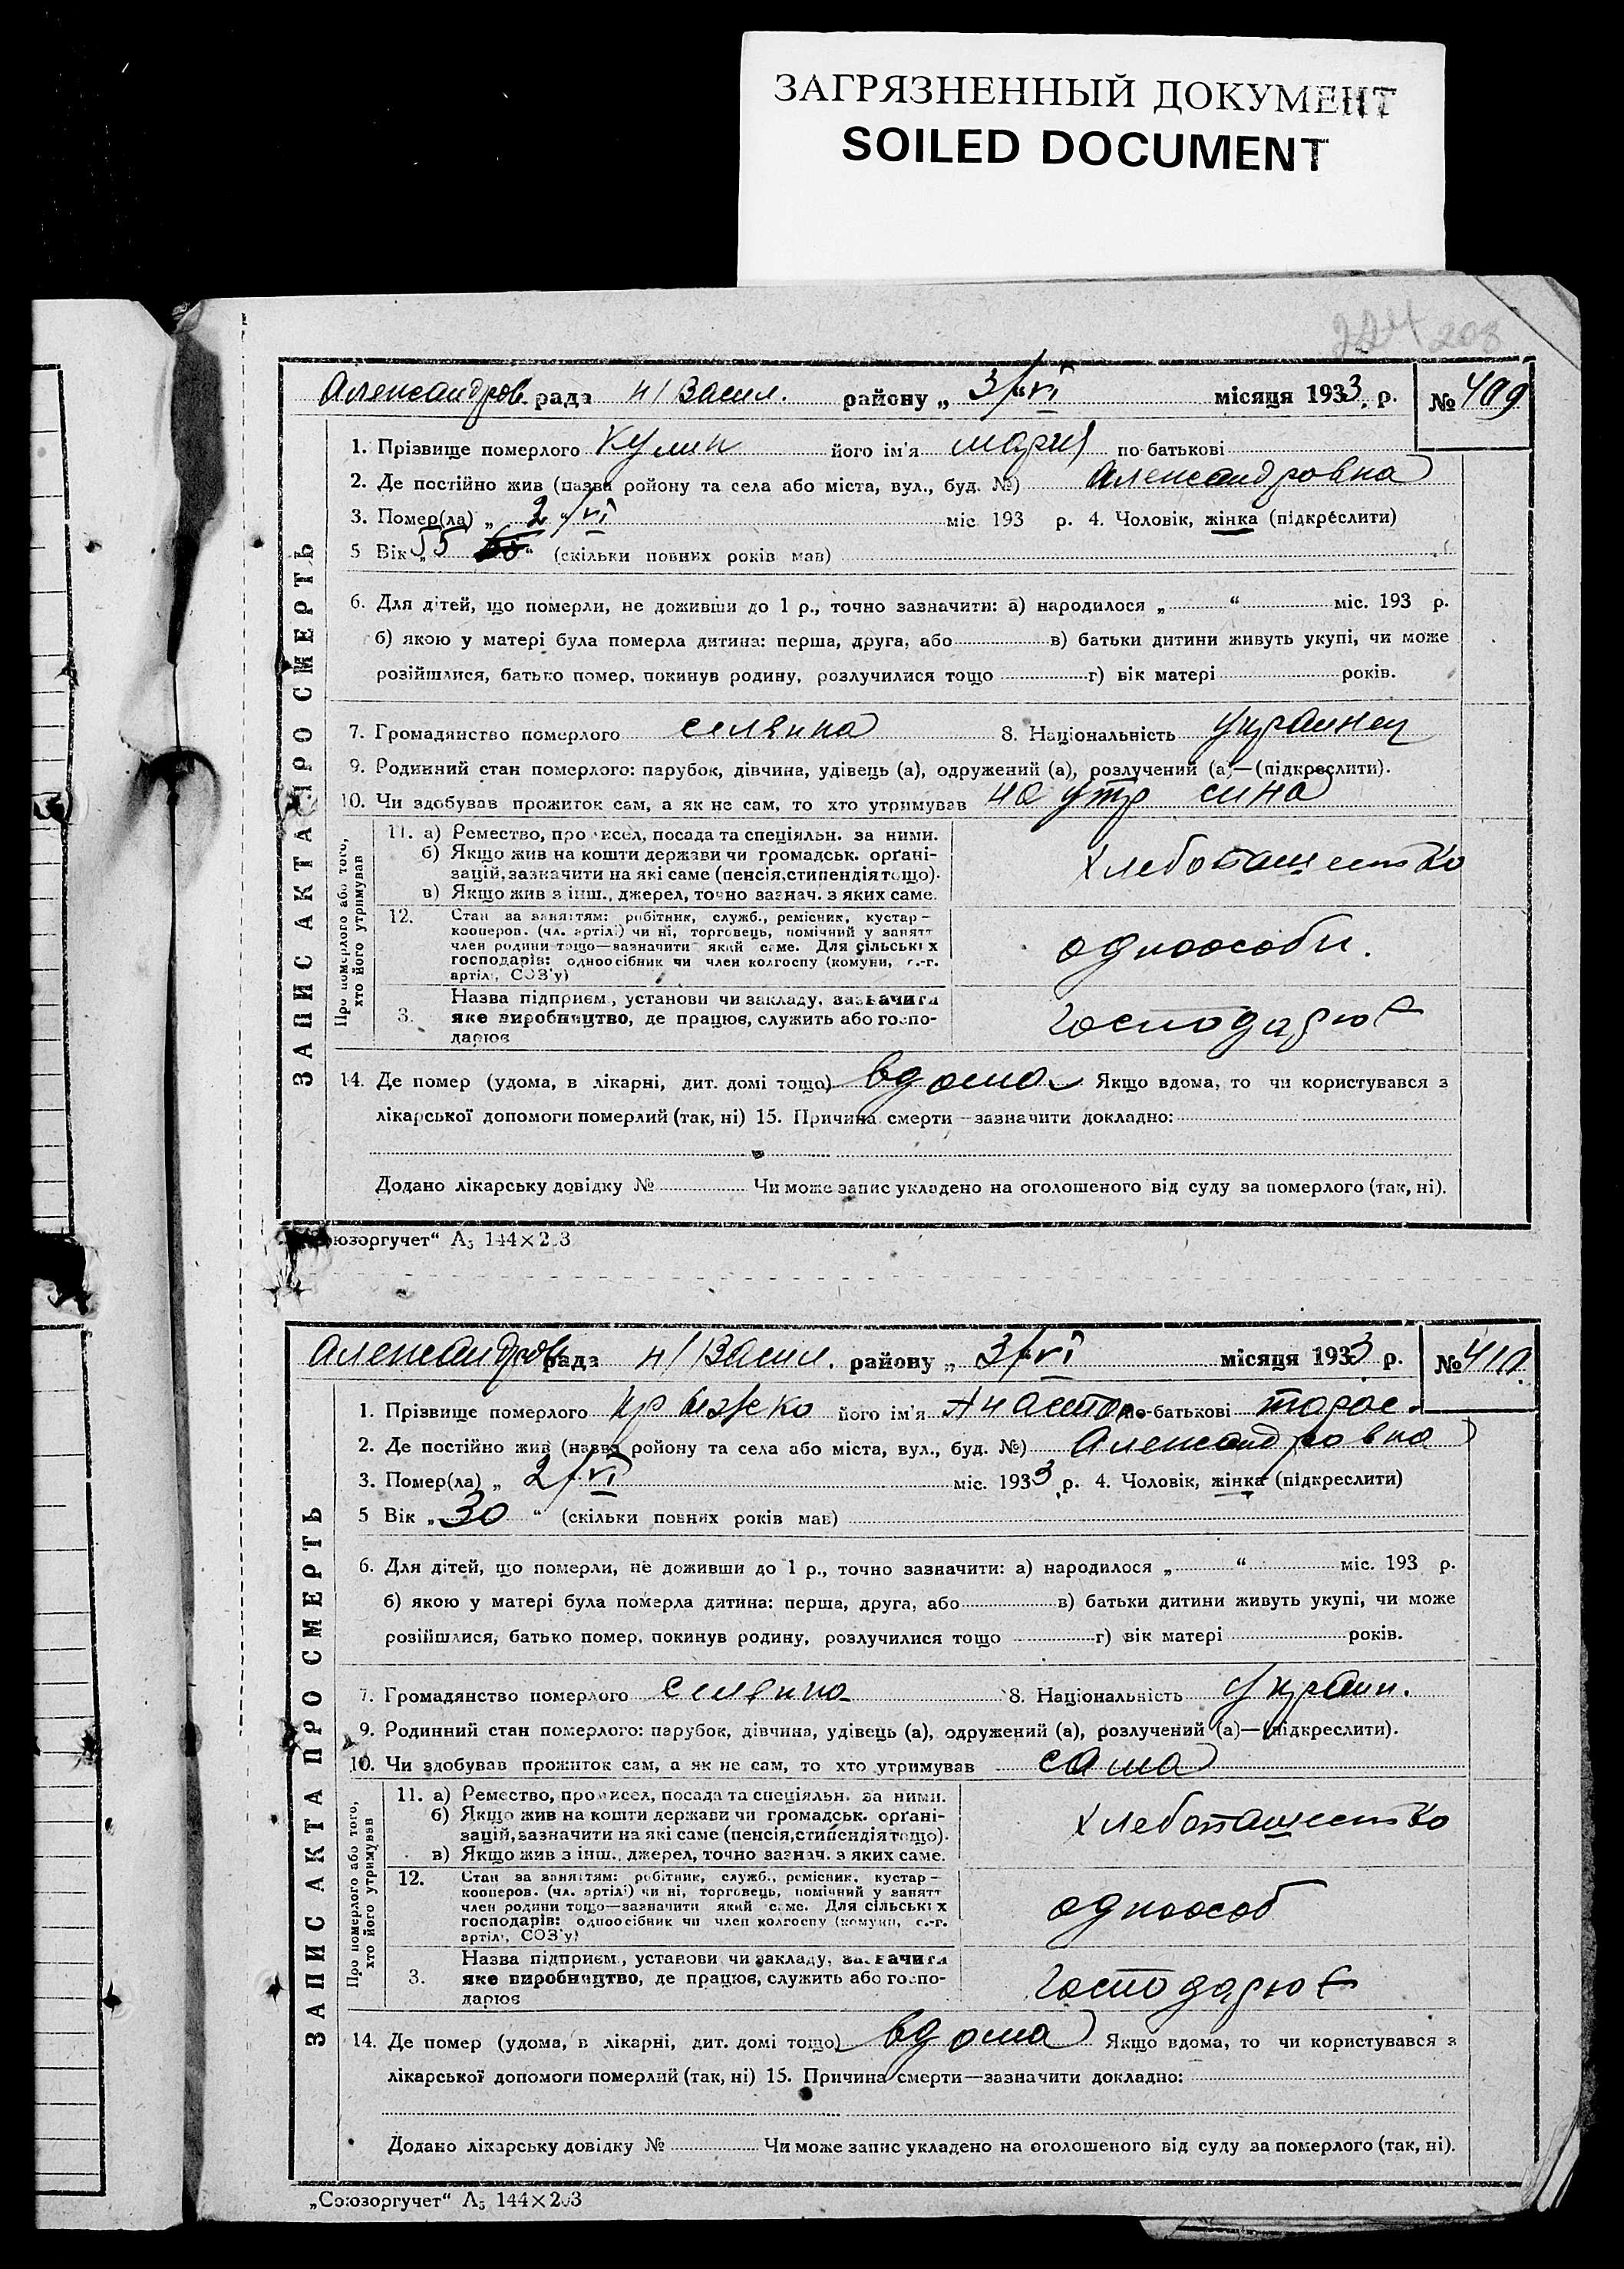 ЗАГРЯЗНЕННЫЙ ДОКУМЕНТ
SOILED DOCUMENT
224 208
Александров. рада Н/Васил. району „ 3/VI місяця 1933 р. № 409
1. Прізвище померлого Кулик його ім'я Мария по-батькові
2. Де постійно жив (назва ройону та села або міста, вул., буд. №) Александровка
3. Помер(ла) „ 2/VI міс 193 р. 4. Чоловік, жінка (підкреслити)
5 Вік „ 55 “ (скільки повних років мав)
6. Для дітей, що померли, не доживши до 1 р., точно зазначити: а) народилося „ “ міс. 193 р.
б) якою у матері була померла дитина: перша, друга, або в) батьки дитини живуть укупі, чи може
розійшлися, батько помер, покинув родину, розлучилися тощо г) вік матері років.
7. Громадянство померлого селянка 8. Національність Украинец
9. Родинний стан померлого: парубок, дівчина, удівець (а), одружений (а), розлучений (а)—(підкреслити).
10. Чи здобував прожиток сам, а як не сам, то хто утримував на утр сина
11. а) Ремество, промисел, посада та спеціяльн. за ними.
б) Якщо жив на кошти держави чи громадськ. органі-
зацій, зазначити на які саме (пенсія, стипендія тощо).
в) Якщо жив з інш., джерел, точно зазнач. з яких саме.
хлебопашество
12. Стан за заняттям: робітник, служб., ремісник, кустар—
кооперов. (чл. артілі) чи ні, торговець, помічний у занятт
член родини тощо—зазначити який саме. Для сільських
господарів: одноосібник чи член колгоспу (комуни, с.-г.
артілі, СОЗ'у)
одноособн.
3. Назва підприєм., установи чи закладу, зазначити
яке виробництво, де працює, служить або госпо-
дарює
господарює
14. Де помер (удома, в лікарні, дит. домі тощо) вдома Якщо вдома, то чи користувався з
лікарської допомоги померлий (так, ні) 15. Причина смерти—зазначити докладно:
Додано лікарську довідку № Чи може запис укладено на оголошеного від суду за померлого (так, ні).
ЗАПИС АКТА ПРО СМЕРТЬ
Про померлого або того,
хто його утримував
юзоргучет“ А₅ 144×203
Александров рада Н/Васил. району „ 3/VI місяця 1933 р. № 410
1. Прізвище померлого його ім'я Анаста по-батькові Тарас.
2. Де постійно жив (назва ройону та села або міста, вул., буд. №) Александровка
3. Помер(ла) „ 2/VI міс. 1933 р. 4. Чоловік, жінка (підкреслити)
5 Вік „ 30 “ (скільки повних років мав)
6. Для дітей, що померли, не доживши до 1 р., точно зазначити: а) народилося „ “ міс. 193 р.
б) якою у матері була померла дитина: перша, друга, або в) батьки дитини живуть укупі, чи може
розійшлися, батько помер, покинув родину, розлучилися тощо г) вік матері років.
7. Громадянство померлого селянка 8. Національність Украин.
9. Родинний стан померлого: парубок, дівчина, удівець (а), одружений (а), розлучений (а)—(підкреслити).
10. Чи здобував прожиток сам, а як не сам, то хто утримував сама
11. а) Ремество, промисел, посада та спеціяльн. за ними.
б) Якщо жив на кошти держави чи громадськ. органі-
зацій, зазначити на які саме (пенсія, стипендія тощо).
в) Якщо жив з інш., джерел, точно зазнач. з яких саме.
хлебопашество
12. Стан за заняттям: робітник, служб., ремісник, кустар—
кооперов. (чл. артілі) чи ні, торговець, помічний у занятт
член родини тощо—зазначити який саме. Для сільських
господарів: одноосібник чи член колгоспу (комуни, с.-г.
артілі, СОЗ'у)
одноособ
3. Назва підприєм., установи чи закладу, зазначити
яке виробництво, де працює, служить або госпо-
дарює
господарює
14. Де помер (удома, в лікарні, дит. домі тощо) вдома Якщо вдома, то чи користувався з
лікарської допомоги померлий (так, ні) 15. Причина смерти—зазначити докладно:
Додано лікарську довідку № Чи може запис укладено на оголошеного від суду за померлого (так, ні).
ЗАПИС АКТА ПРО СМЕРТЬ
Про померлого або того,
хто його утримував
„Союзоргучет“ А₅ 144×203